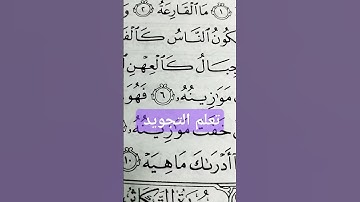 ۝١ مَا ٱلْقَارِعَةُ ۝٢ وَ
كُونُ ٱلنَّاسُ كَٱلْفَ
جِبَالُ كَٱلْعِهْنِ ٱ
مَوَٰزِينُهُۥ ۝٦ فَهُوَ
تعلم التجويد
خَفَّتْ مَوَٰزِينُهُۥ
أَدْرَىٰكَ مَا هِيَهْ ۝١٠
سُورَةُ التَّكَاثُرِ